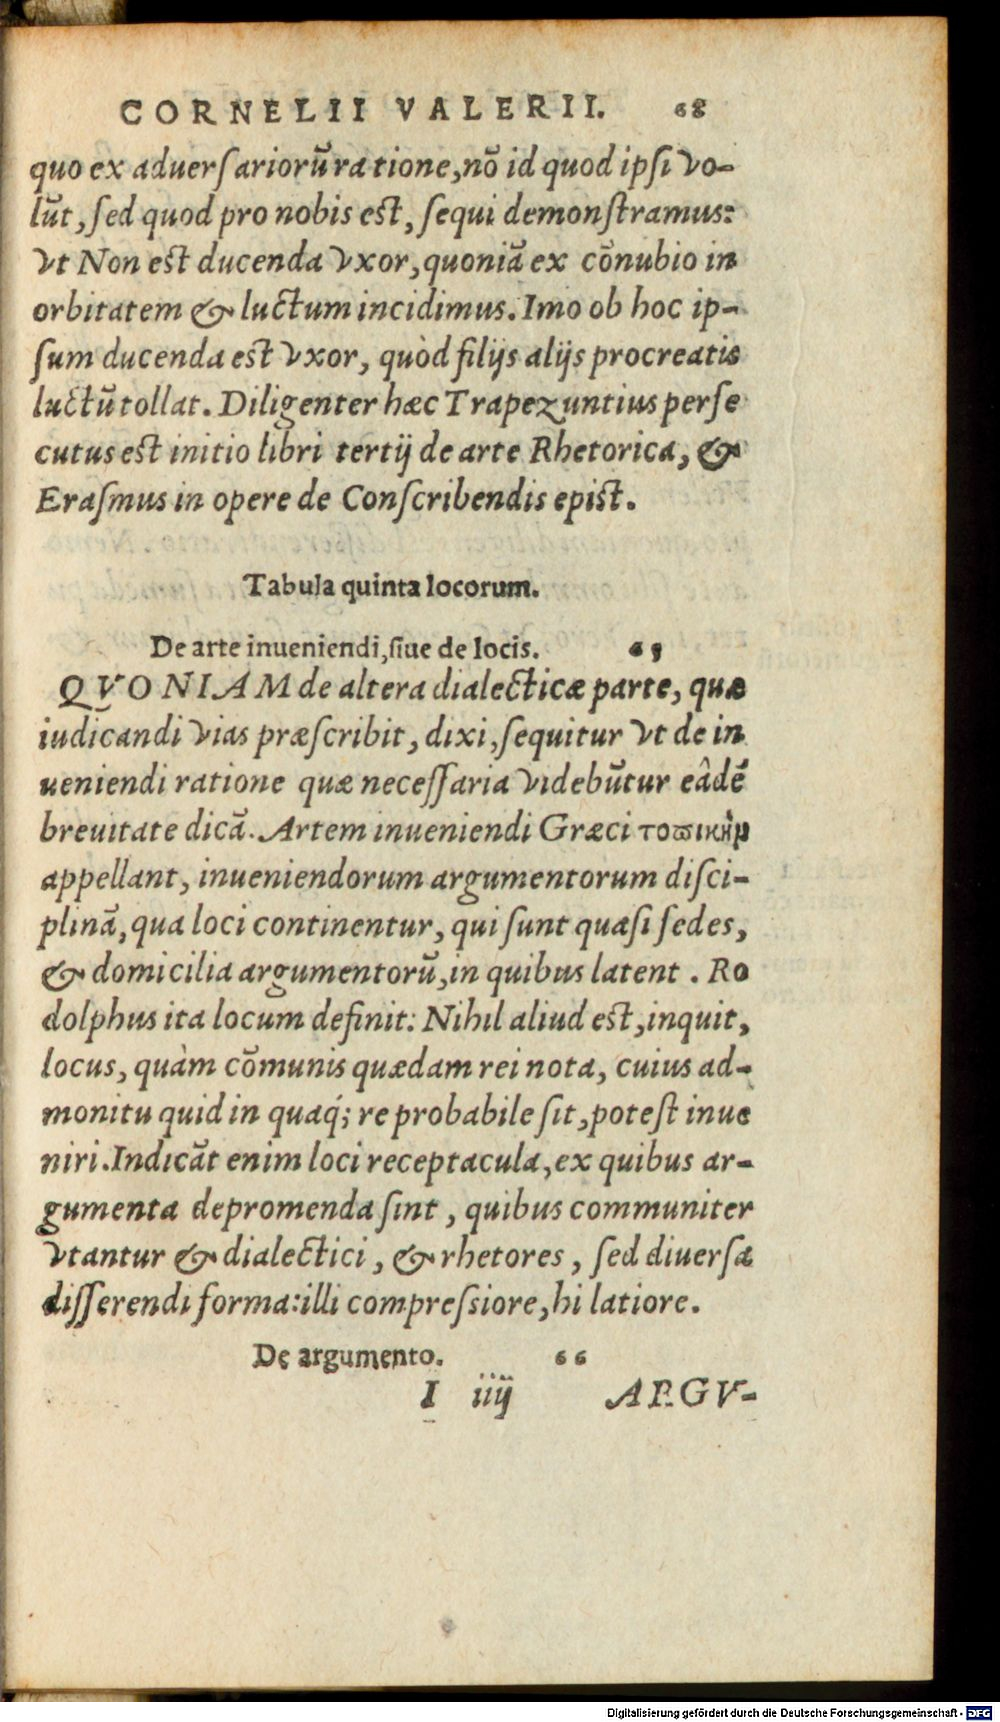 CORNELII VALERII. 68
quo ex aduersariorū ratione, nō id quod ipsi vo-
lūt, sed quod pro nobis est, sequi demonstramus:
vt Non est ducenda vxor, quoniā ex cōnubio in
orbitatem & luctum incidimus. Imo ob hoc ip-
sum ducenda est vxor, quòd filijs alijs procreatis
luctū tollat. Diligenter hæc Trapezuntius perse
cutus est initio libri tertij de arte Rhetorica, &
Erasmus in opere de Conscribendis epist.
Tabula quinta locorum.
De arte inueniendi, siue de locis. 65
QVONIAM de altera dialecticæ parte, quæ
iudicandi vias præscribit, dixi, sequitur vt de in
ueniendi ratione quæ necessaria videbūtur eâdē
breuitate dicā. Artem inueniendi Græci τοπικὴν
appellant, inueniendorum argumentorum disci-
plinā, qua loci continentur, qui sunt quasi sedes,
& domicilia argumentorū, in quibus latent. Ro
dolphus ita locum definit: Nihil aliud est, inquit,
locus, quàm cōmunis quædam rei nota, cuius ad-
monitu quid in quaq́; re probabile sit, potest inue
niri. Indicāt enim loci receptacula, ex quibus ar-
gumenta depromenda sint, quibus communiter
vtantur & dialectici, & rhetores, sed diuersa
disserendi forma: illi compressiore, hi latiore.
De argumento. 66
I iiij ARGV-
Digitalisierung gefördert durch die Deutsche Forschungsgemeinschaft - DFG